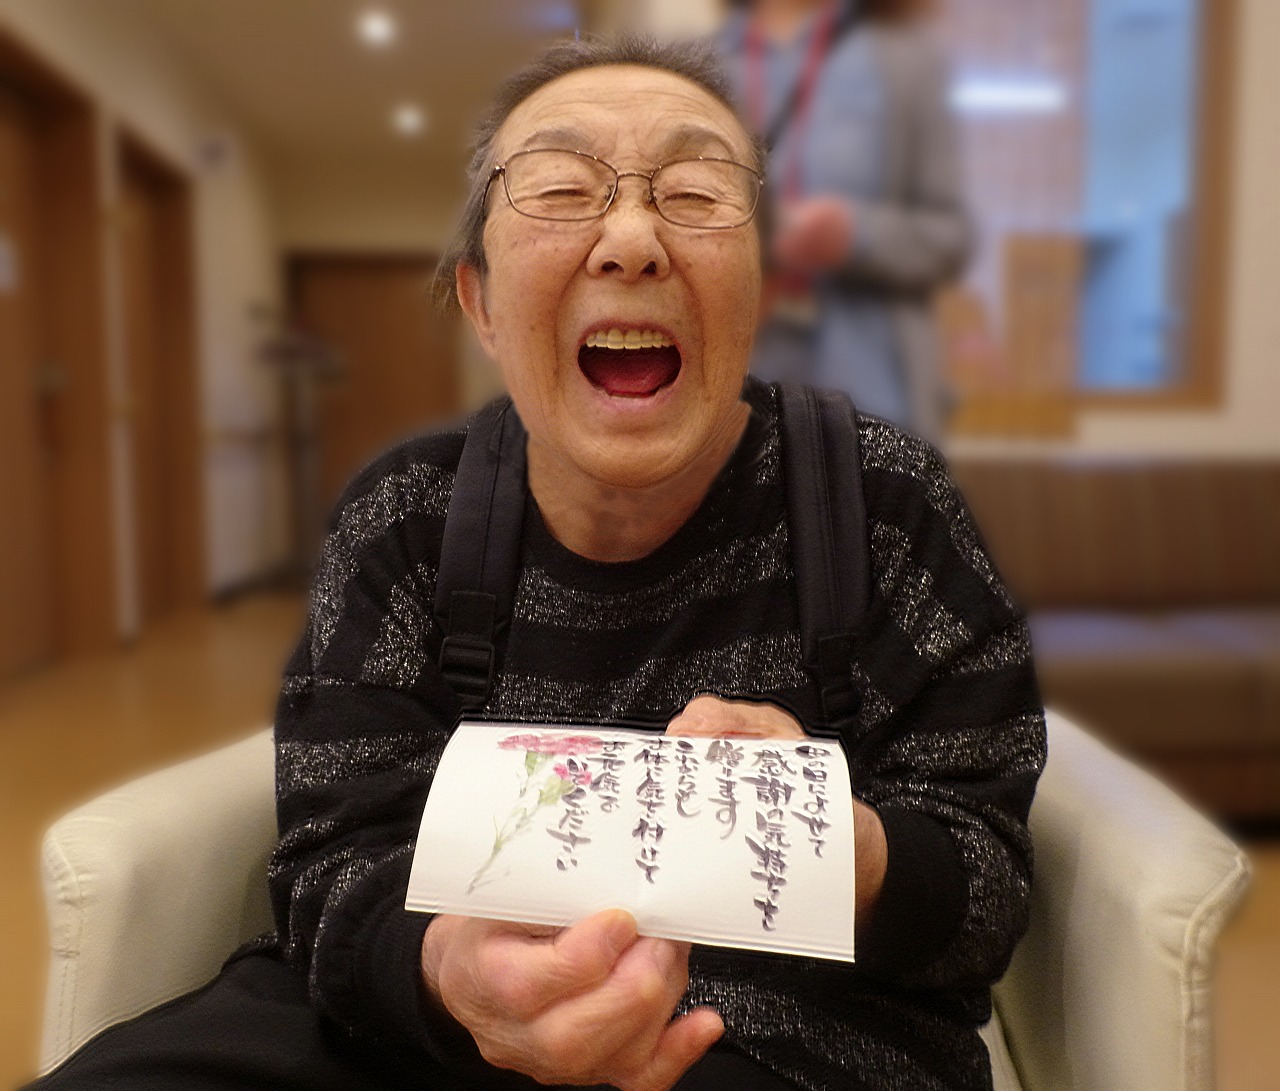 母の日によせて
感謝の気持ちを
贈ります
これからも
お体に気を付けて
お元気で
いてください